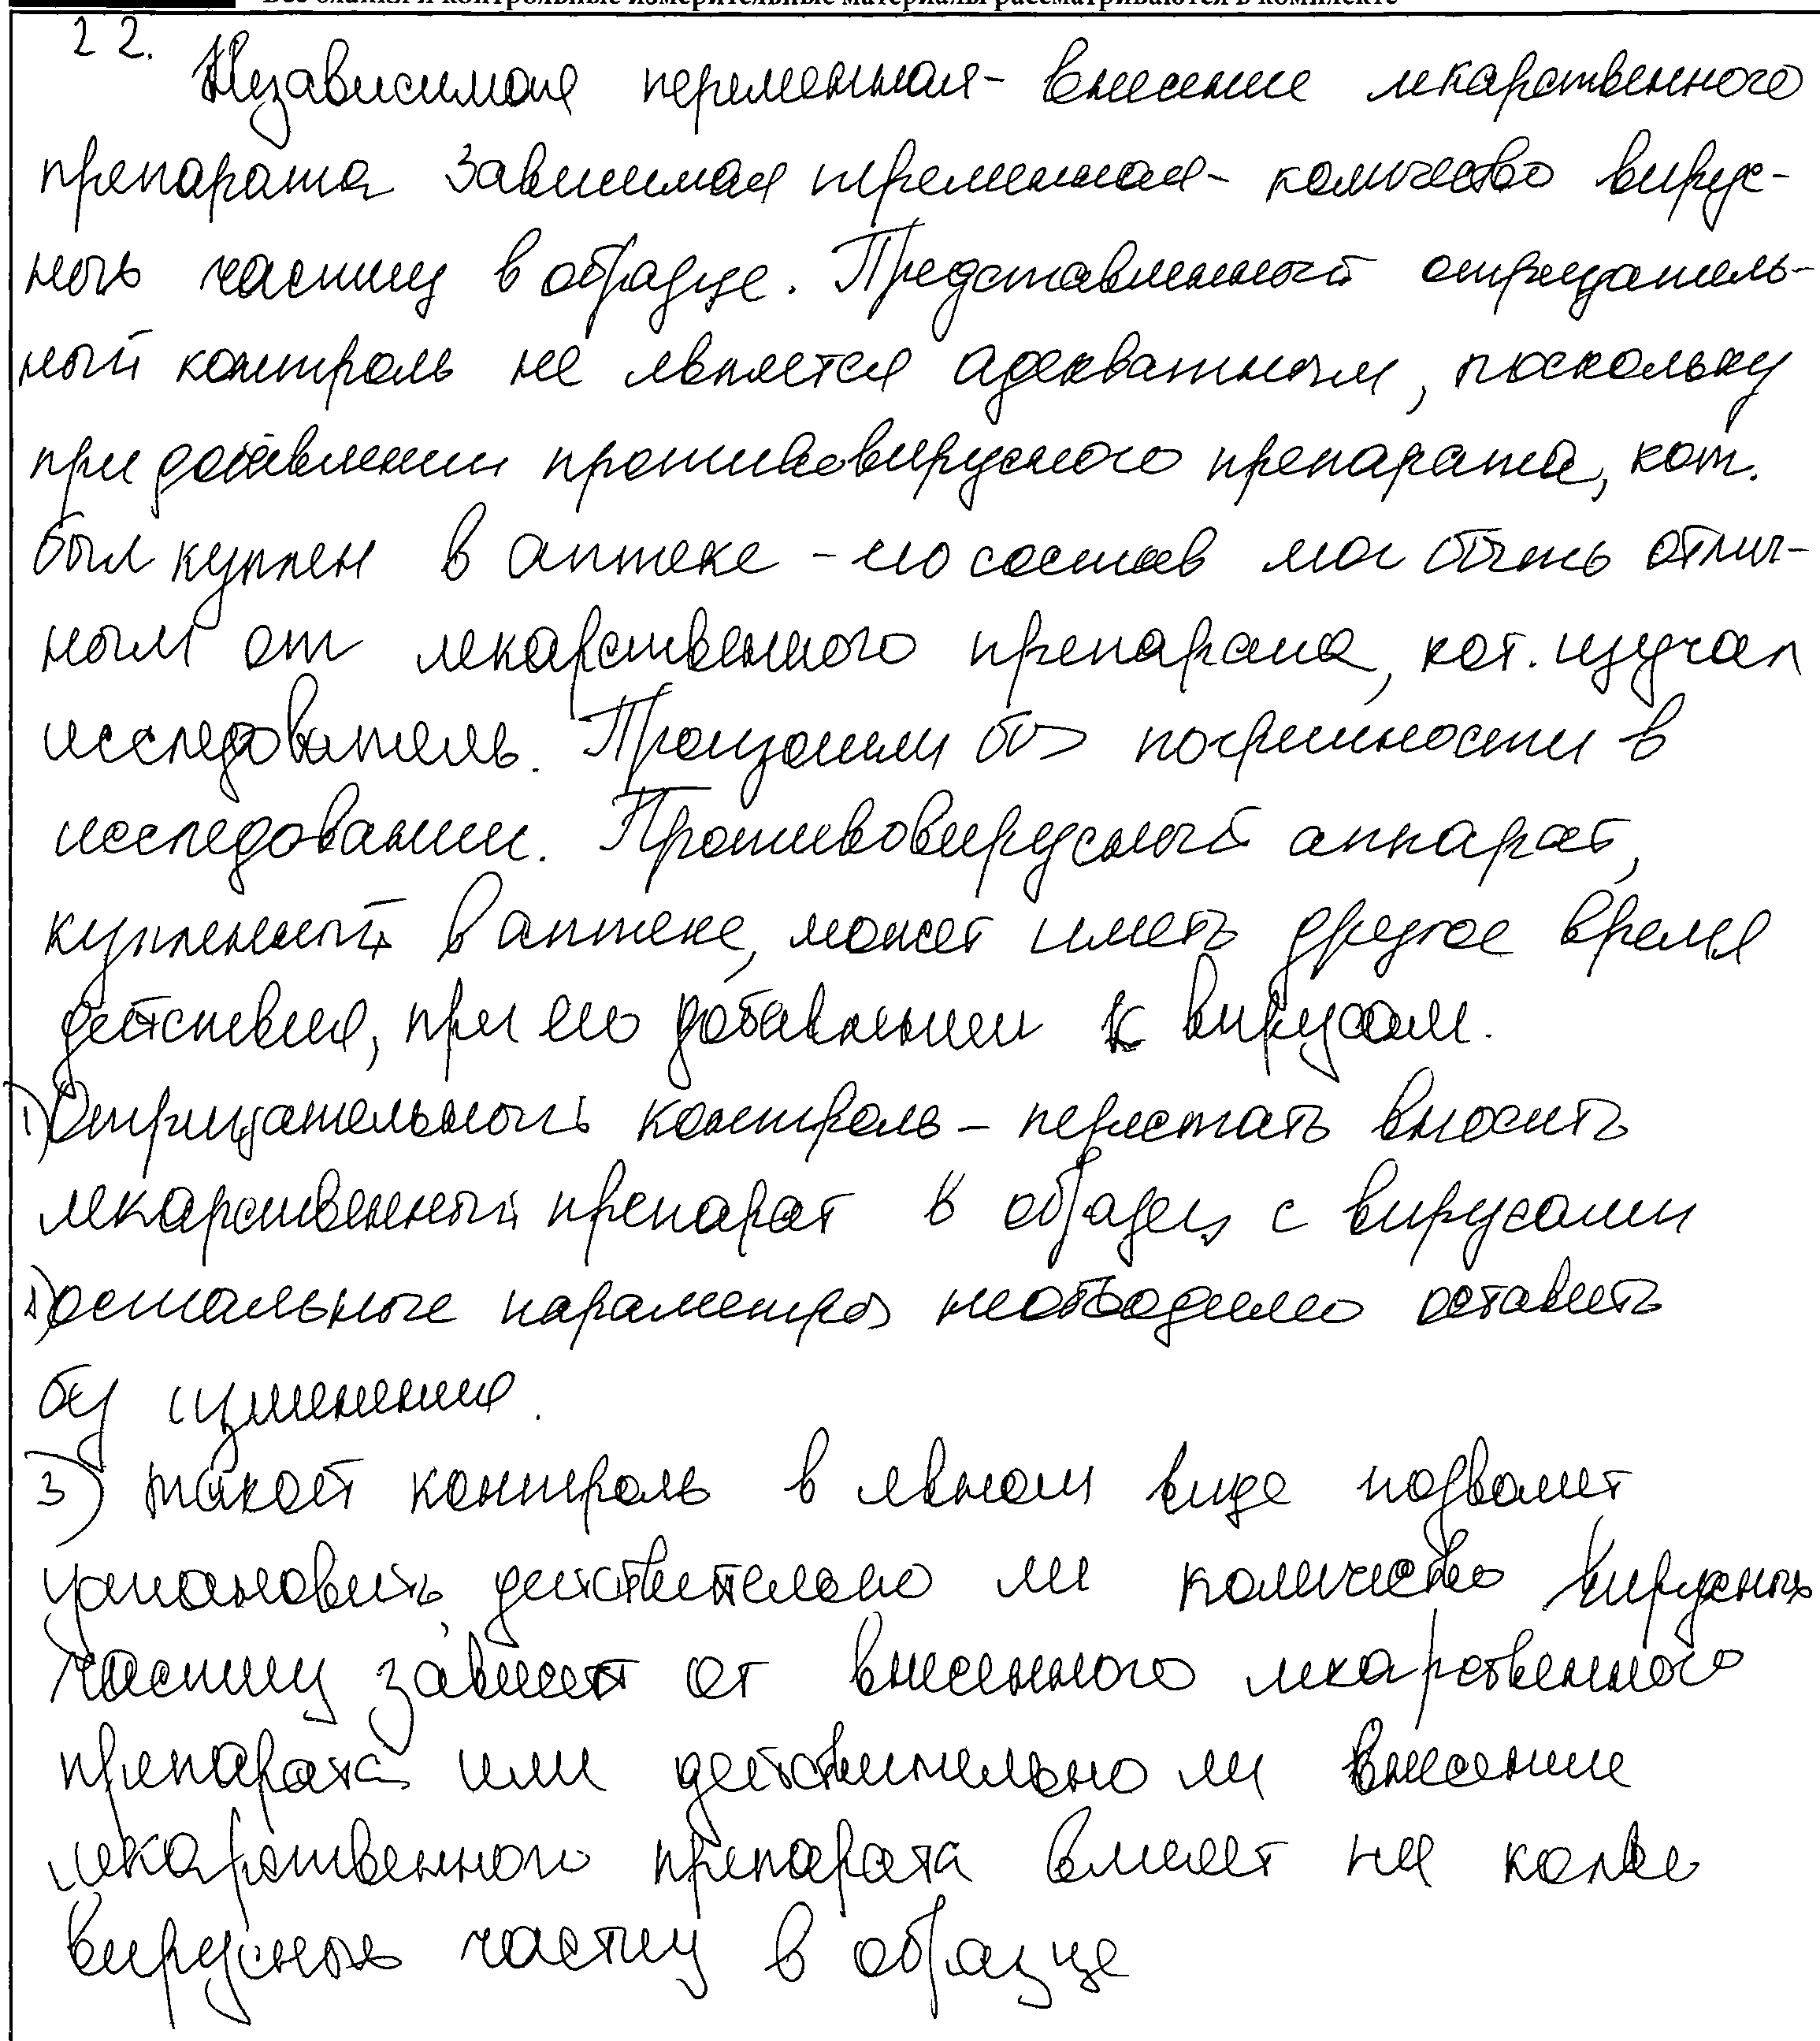 Все бланки и контрольные измерительные материалы рассматриваются в комплекте
22.
Независимая переменная - внесение лекарственного
препарата Зависимая переменная - количество вирус-
ных частиц в образце. Представленный отрицатель-
ный контроль не является адекватным, поскольку
при добавлении противовирусного препарата, кот.
был куплен в аптеке - его состав мог быть отлич-
ным от лекарственного препарата, кот. изучал
исследователь. Произошли бы погрешности в
исследовании. Противовирусный аппарат,
купленный в аптеке, может иметь другое время
действия, при его добавлении к вирусам.
1) Отрицательный контроль - перестать вносить
лекарственный препарат в образец с вирусами
2) остальные параметры необходимо оставить
без изменения.
3) такой контроль в явном виде позволит
установить, действительно ли количество вирусных
частиц зависит от внесенного лекарственного
препарата или действительно ли внесение
лекарственного препарата влияет на кол-во
вирусных частиц в образце